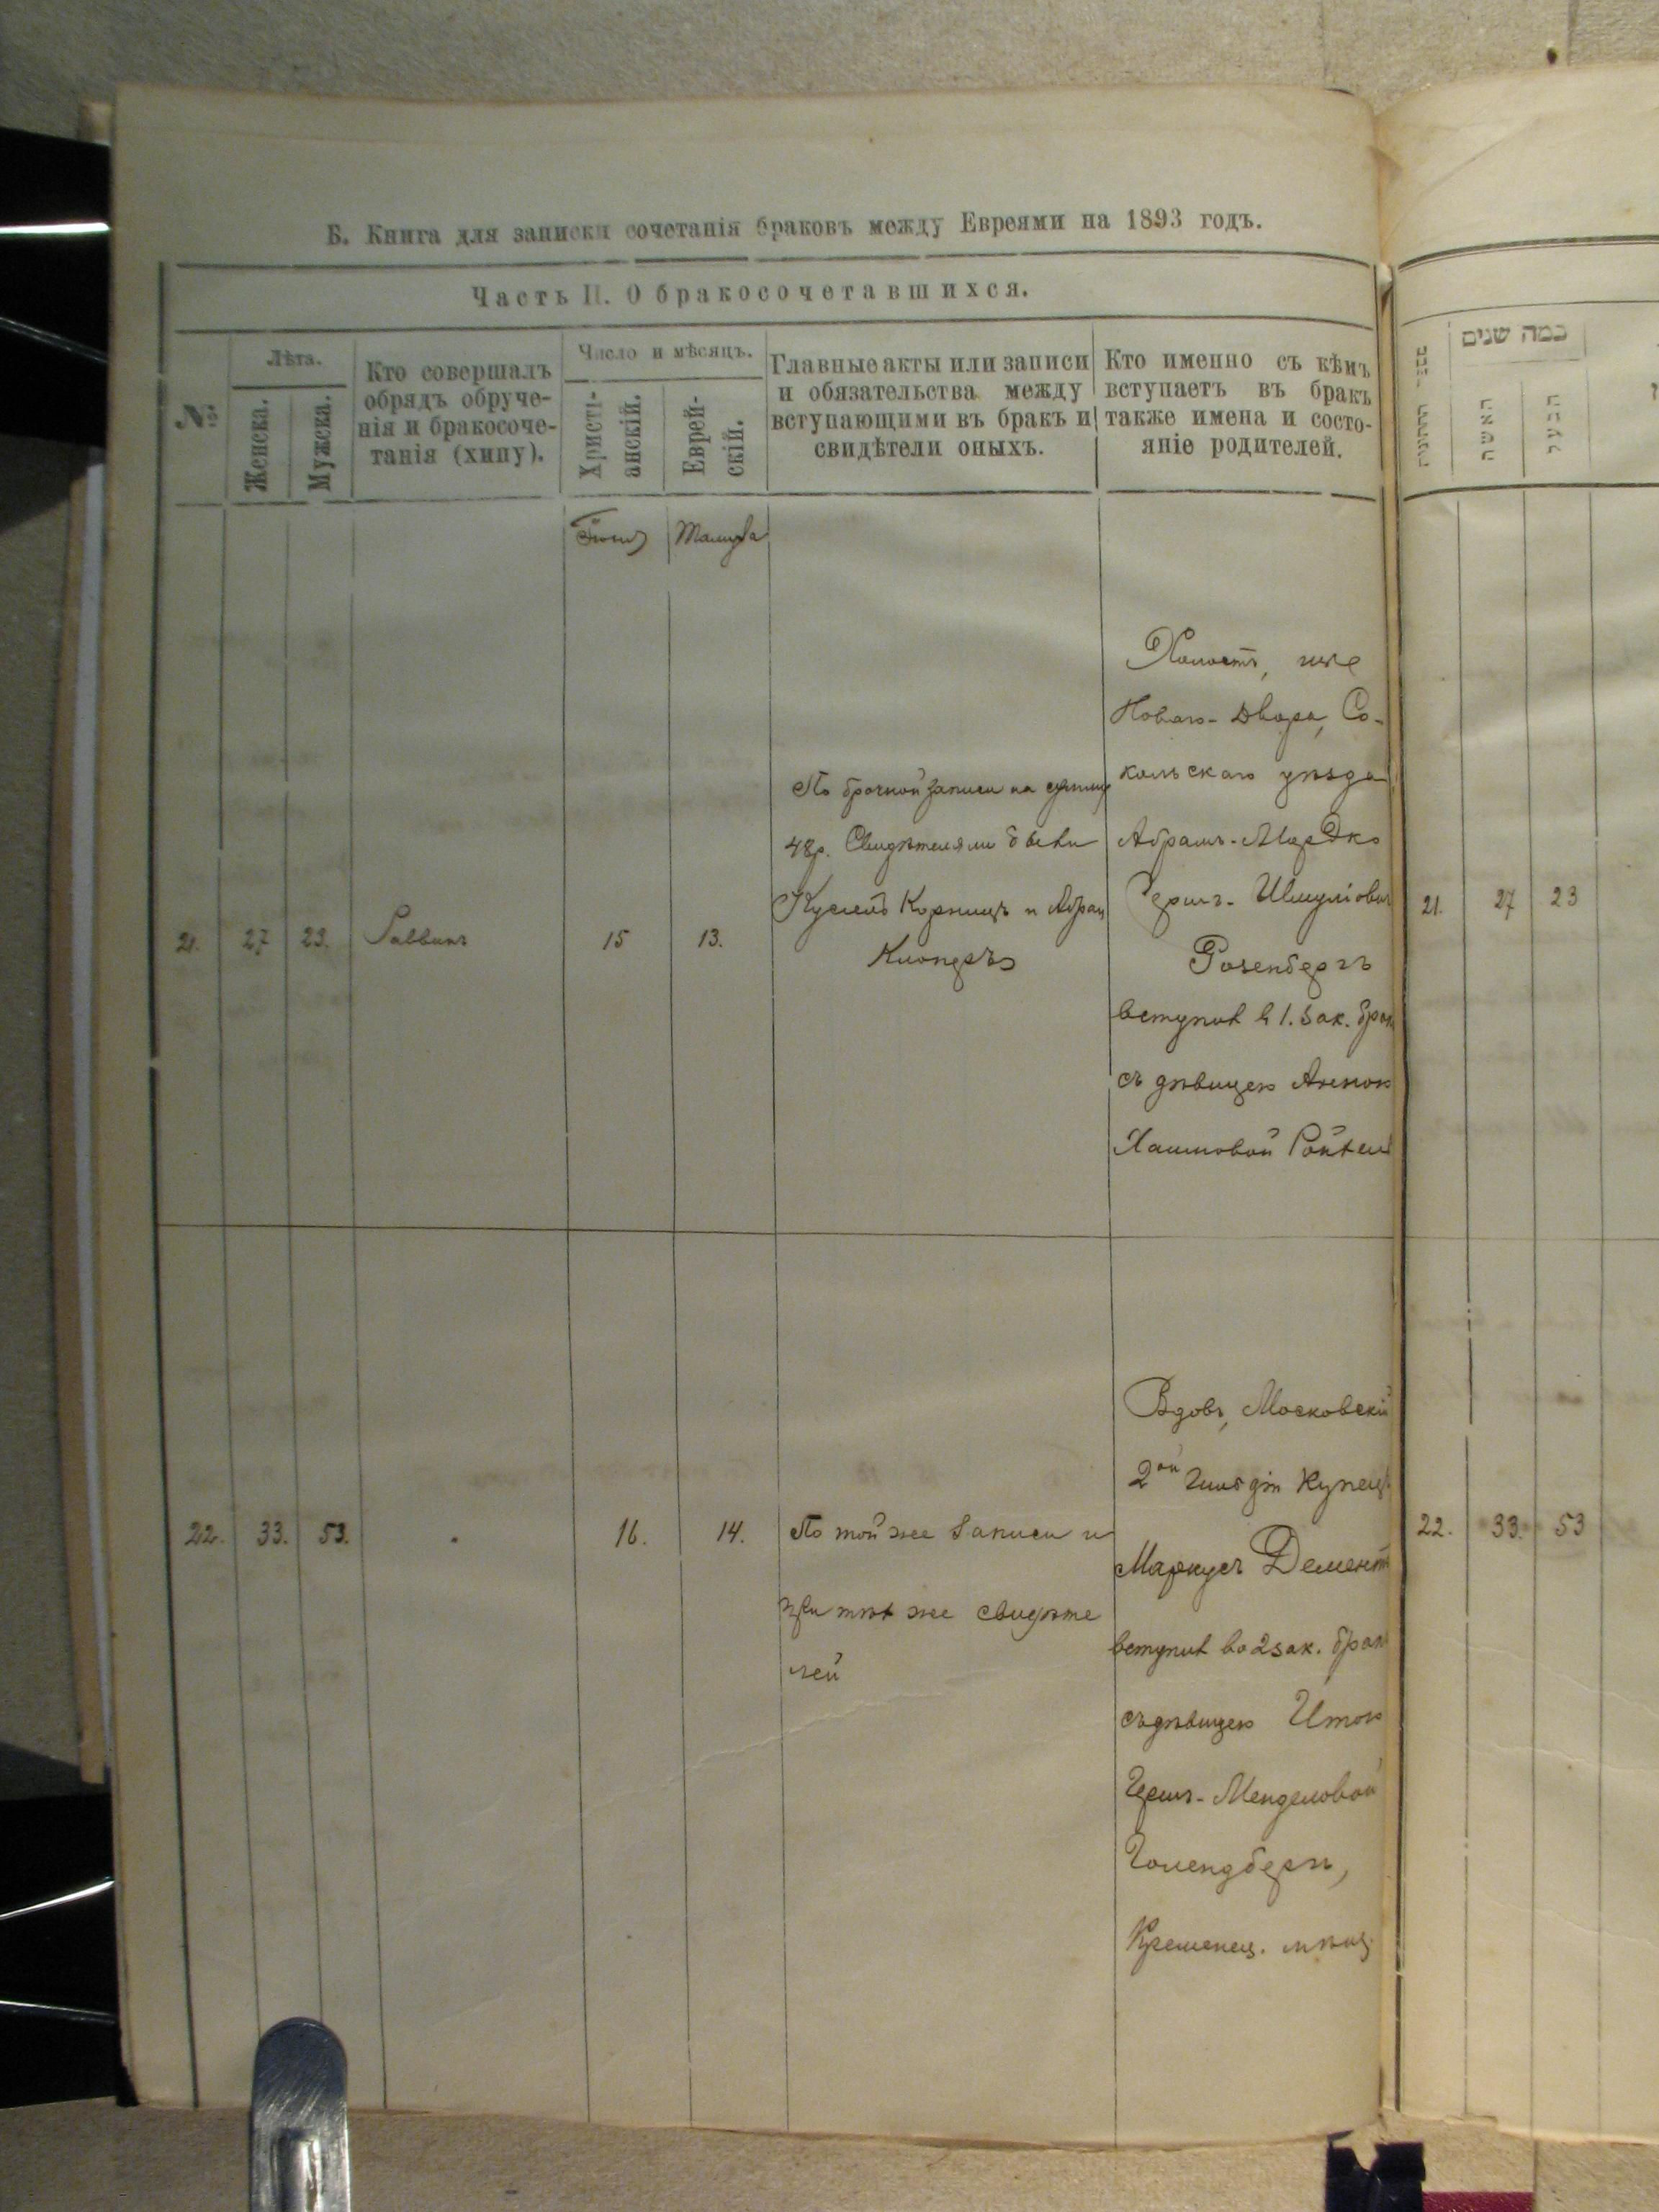 Б. Книга для записки сочетанія браковъ между Евреями на 1893 годъ.
Часть II. О бракосочетавшихся.
№
Лѣта.
Женска.
Мужска.
Кто совершалъ
обрядъ обруче-
нія и бракосоче-
танія (хипу).
Число и мѣсяцъ.
Христі-
анскій.
Еврей-
скій.
Главные акты или записи
и обязательства между
вступающими въ бракъ и
свидѣтели оныхъ.
Кто именно съ кѣмъ
вступаетъ въ бракъ
также имена и состо-
яніе родителей.
כמה שנים
האשה
הבעל
Тамуза
21.
27
23.
Раввинъ
15
13.
По брачной записи на сумму
48р. Свидѣтелями были
и Абрам
Холостъ,
Новаго-Двора, Со-
кольскаго уѣзда
Абрамъ-Мордко
Гершъ-Шмуліовъ
Розенбергъ
вступил в 1. зак. брак
съ дѣвицею
Хаимовой
21.
27
23
22.
33.
53.
16.
14.
По той же записи и
при тѣх же свидѣте
лей
Вдовъ, Московскій
2ой Гильдіи Купецъ
Маркусъ Демент
вступил во 2 зак. брак
съ дѣвицею Итою
Герш-Менделовой
Голендберг,
Кременец. мѣщ.
22.
33.
53